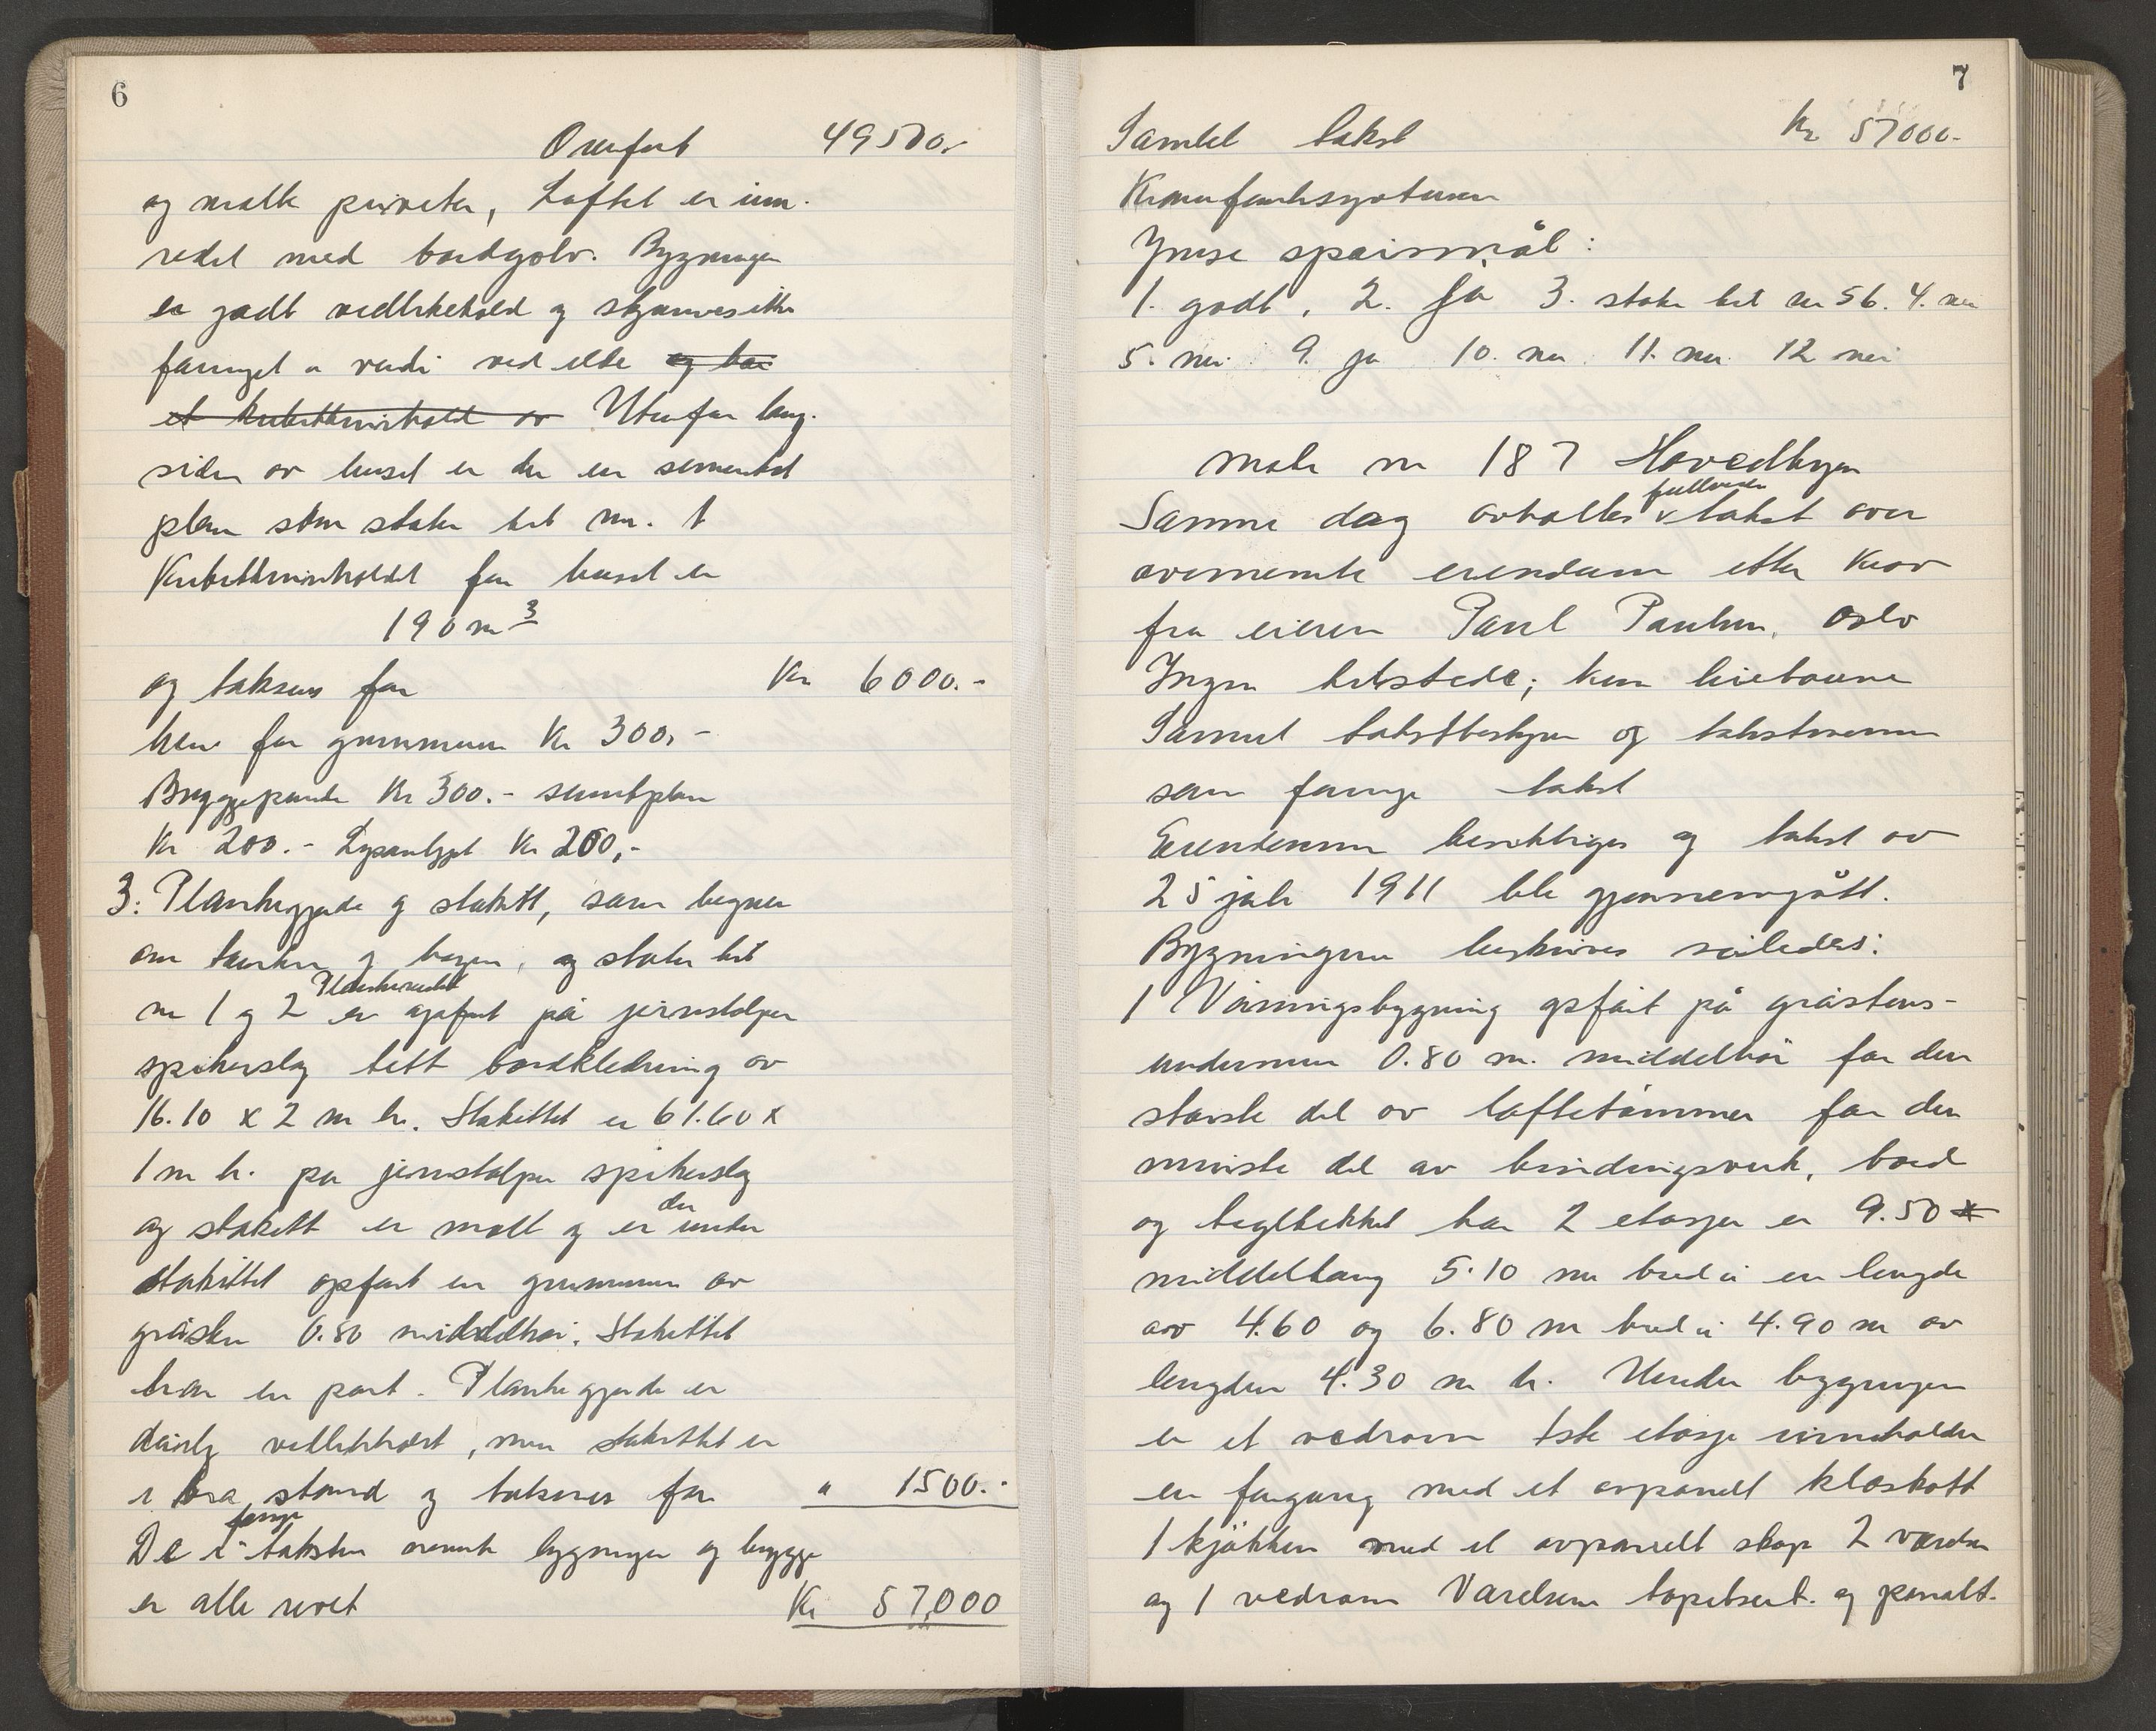 6
Overført 49500.-
og malte priveter, Loftet er inn-
redet med bordgolv. Bygningen
er godt vedlikehold og skjønnes ikke
forringet i verdi ved elde og har
et kubikkinnhold av Utenfor lang-
siden av huset er der en sementert
plan som støter til nr. 1
Kubikkinnholdet for huset er
190 m3
og takseres for Kr 6000.-
herav for grunnmuren Kr 300,-
Bryggepanne Kr 300.- sementplan
Kr 200.- Lysanlegget Kr 200,-
3. Plankegjerde og stakitt, som hegner
om tomten og hagen, og støter til
nr 1 og 2 Plankegjerdet er opført på jernstolper
spikerslag tett bordkledning av
16.10 x 2 m h. Stakittet er 61.60 x
1 m h. på jernstolper spikerslag
og stakitt er malt og er der under
stakittet opført en grunnmur av
gråsten 0.80 middelhøi. Stakittet
har en port. Plankegjerde er
dårlig vedlikeholdt, men stakittet er
i bra stand og takseres for " 1500.-
De i forrige taksten nevnte bygninger og brygge
er alle revet Kr 57,000
7
Samlet takst Kr 57000.-
Ymse spørsmål:
1. godt, 2. ja 3. støter til nr 56. 4. nei
5. nei 9. ja 10. nei 11. nei 12 nei
matr nr 187 Hovedbyen
Samme dag avholtes fullverdi takst over
ovennemte eiendom etter krav
fra eieren Paul Paulsen, Oslo
Ingen tilstede; kun leieboerne
Samme takstbestyrer og takstmenn
som forrige takst
Eiendommen besiktiges og takst av
25 juli 1911 ble gjennemgått.
Bygningene beskrives således:
1 Våningsbygning opført på gråstens-
undermur 0.80 m. middelhøi for den
største del av laftetømmer for den
minste del av bindingsverk, bord
og tegltekket har 2 etasjer er 9.50 x
middellang 5.10 m bred i en lengde
av 4.60 og 6.80 m bred i 4.90 m av
lengden 4.30 m h. Under bygningen
er et vedrom 1ste etasje inneholder
en forgang med et avpanelt kloskott
1 kjøkken med et avpanelt skap 2 værelser
og 1 vedrom Værelsene tapetsert og panelt.